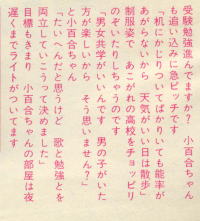 受験勉強進んでますか？　小百合ちゃん
も追い込みに急ピッチです
「机にかじりついてばかりいても能率が
あがらないから　天気がいい日は散歩」
制服姿で　あこがれの高校をチョッピリ
のぞいたりしちゃうのです
「男女共学がいいんです　男の子がいた
方が楽しいから　そう思いません？」
と小百合ちゃん
「たいへんだと思うけど　歌と勉強とを
両立していこうって決めました」
目標もきまり　小百合ちゃんの部屋は夜
遅くまでライトがついてます